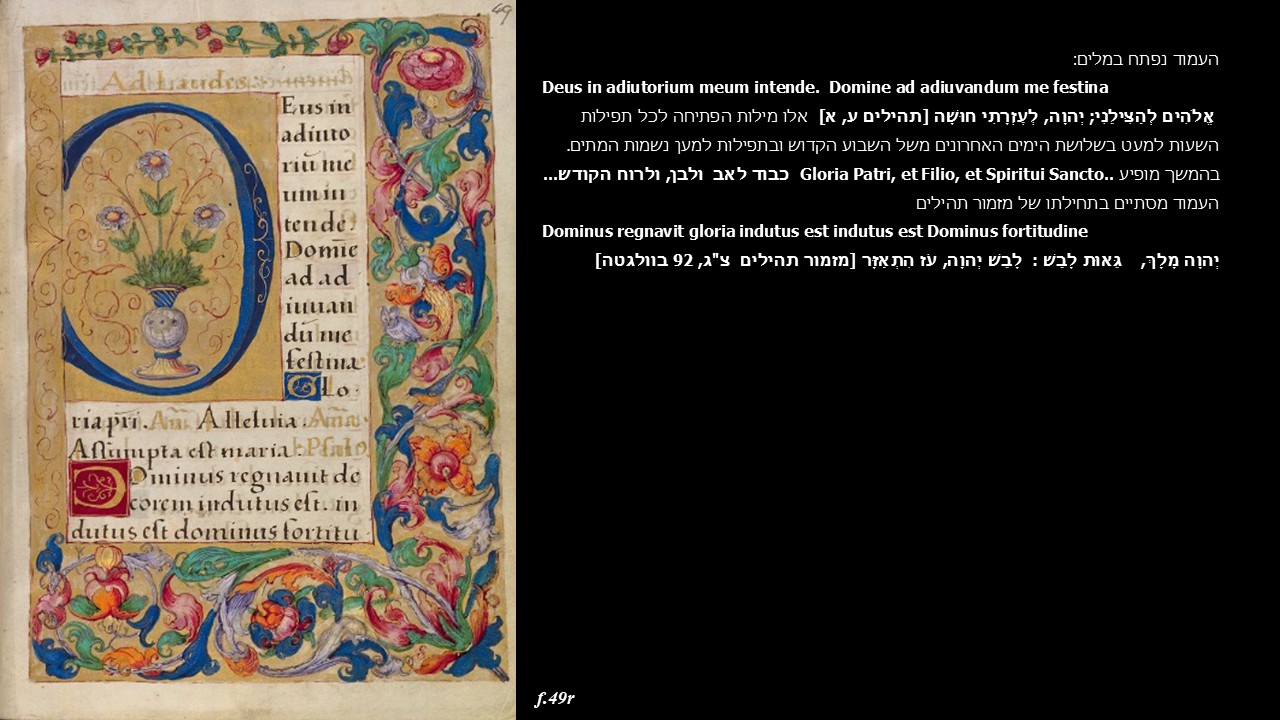 49
Ad Laudes.
Eus in
adiuto
riū me
um in
tende.
Domīe
ad ad
iuuan
dū me
festina
Glo
ria pr̄i. Añ. Alleluia. Aña.
Assumpta est maria. Psalo
Dominus regnauit de
corem indutus est. in
dutus est dominus fortitu
העמוד נפתח במלים:
Deus in adiutorium meum intende. Domine ad adiuvandum me festina
אֱלֹהִים לְהַצִּילֵנִי; יְהוָה, לְעֶזְרָתִי חוּשָׁה [תהילים ע, א] אלו מילות הפתיחה לכל תפילות
השעות למעט בשלושת הימים האחרונים משל השבוע הקדוש ובתפילות למען נשמות המתים.
בהמשך מופיע ..Gloria Patri, et Filio, et Spiritui Sancto כבוד לאב ולבן, ולרוח הקודש...
העמוד מסתיים בתחילתו של מזמור תהילים
Dominus regnavit gloria indutus est indutus est Dominus fortitudine
יְהוָה מָלָךְ, גֵּאוּת לָבֵשׁ : לָבֵשׁ יְהוָה, עֹז הִתְאַזָּר [מזמור תהילים צ"ג, 92 בוולגטה]
f.49r